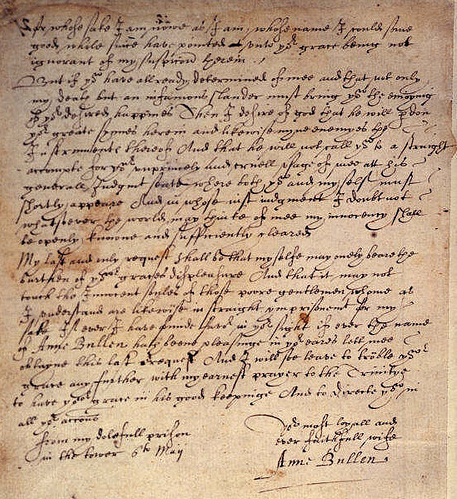 for whose sake I am nowe as I am, whose name I could some
good while since have pointed unto yor grace being not
ignorant of my suspicion herein
But if yow have allready determined of mee and that not only
my death but an infamous slander must bring yow the enioying
of yor desired happines Then I desire of god that he will pardon
yor greate sinnes herein and likewise myne enemyes the
Instruments thereof And that he will not call yow to a straight
accompt for yor unprincely and cruell usage of mee att his
generall Judgmt seate where both yow and my selfe must
shortly appeare And in whose iust iudgment I doubt not
whatsoever the world may thinke of mee my innocency shall
be openly knowne and sufficiently cleared
My last and only request shall be that my selfe may onely beare the
burthen of yor graces displeasure And that it may not
touch the Innocent soules of those poore gentlemen whome as
I understand are likewise in straight imprisonment for my
sake If ever I have founde favor in yor sight if ever the name
of Anne Bullen hath beene pleasinge in yor eares lett mee
obtayne this last request And I will soe leave to troble yor
grace any further with my earnest prayer to the Trinitye
to have yor grace in his good keepinge And to directe yow in
all yor actions
from my dolefull prison
in the tower 6th May
Yor most loyall and
ever faithfull wife
Anne Bullen